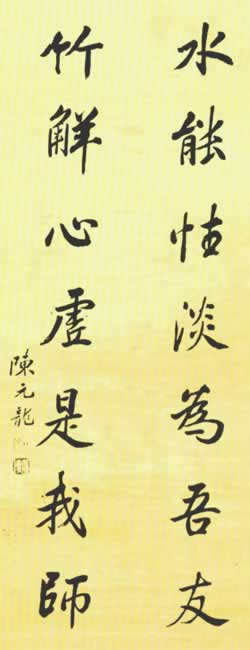 水能性淡為吾友
竹解心虛是我師
陳元龍